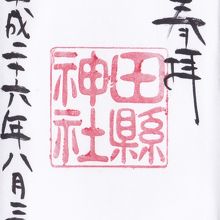 奉拝
田縣
神社
平成二十六年八月三